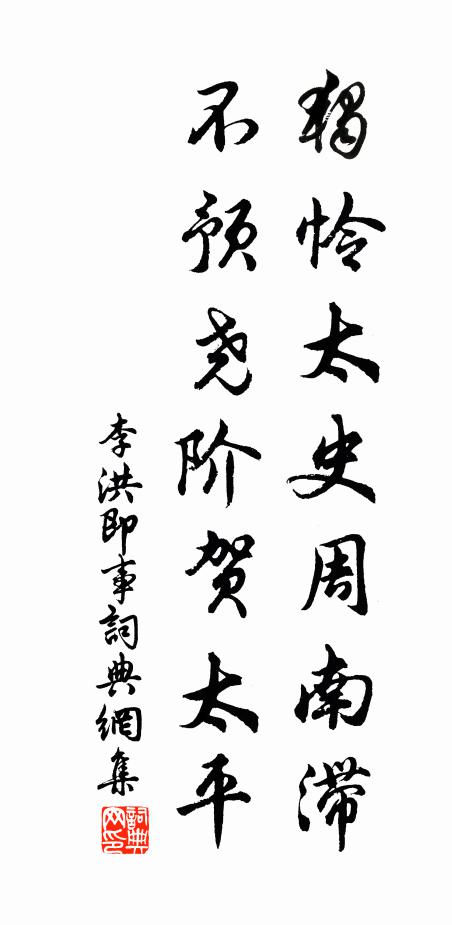 獨怜太史周南滞
不预尧阶贺太平
李洪即事詞典網集
詞典網印